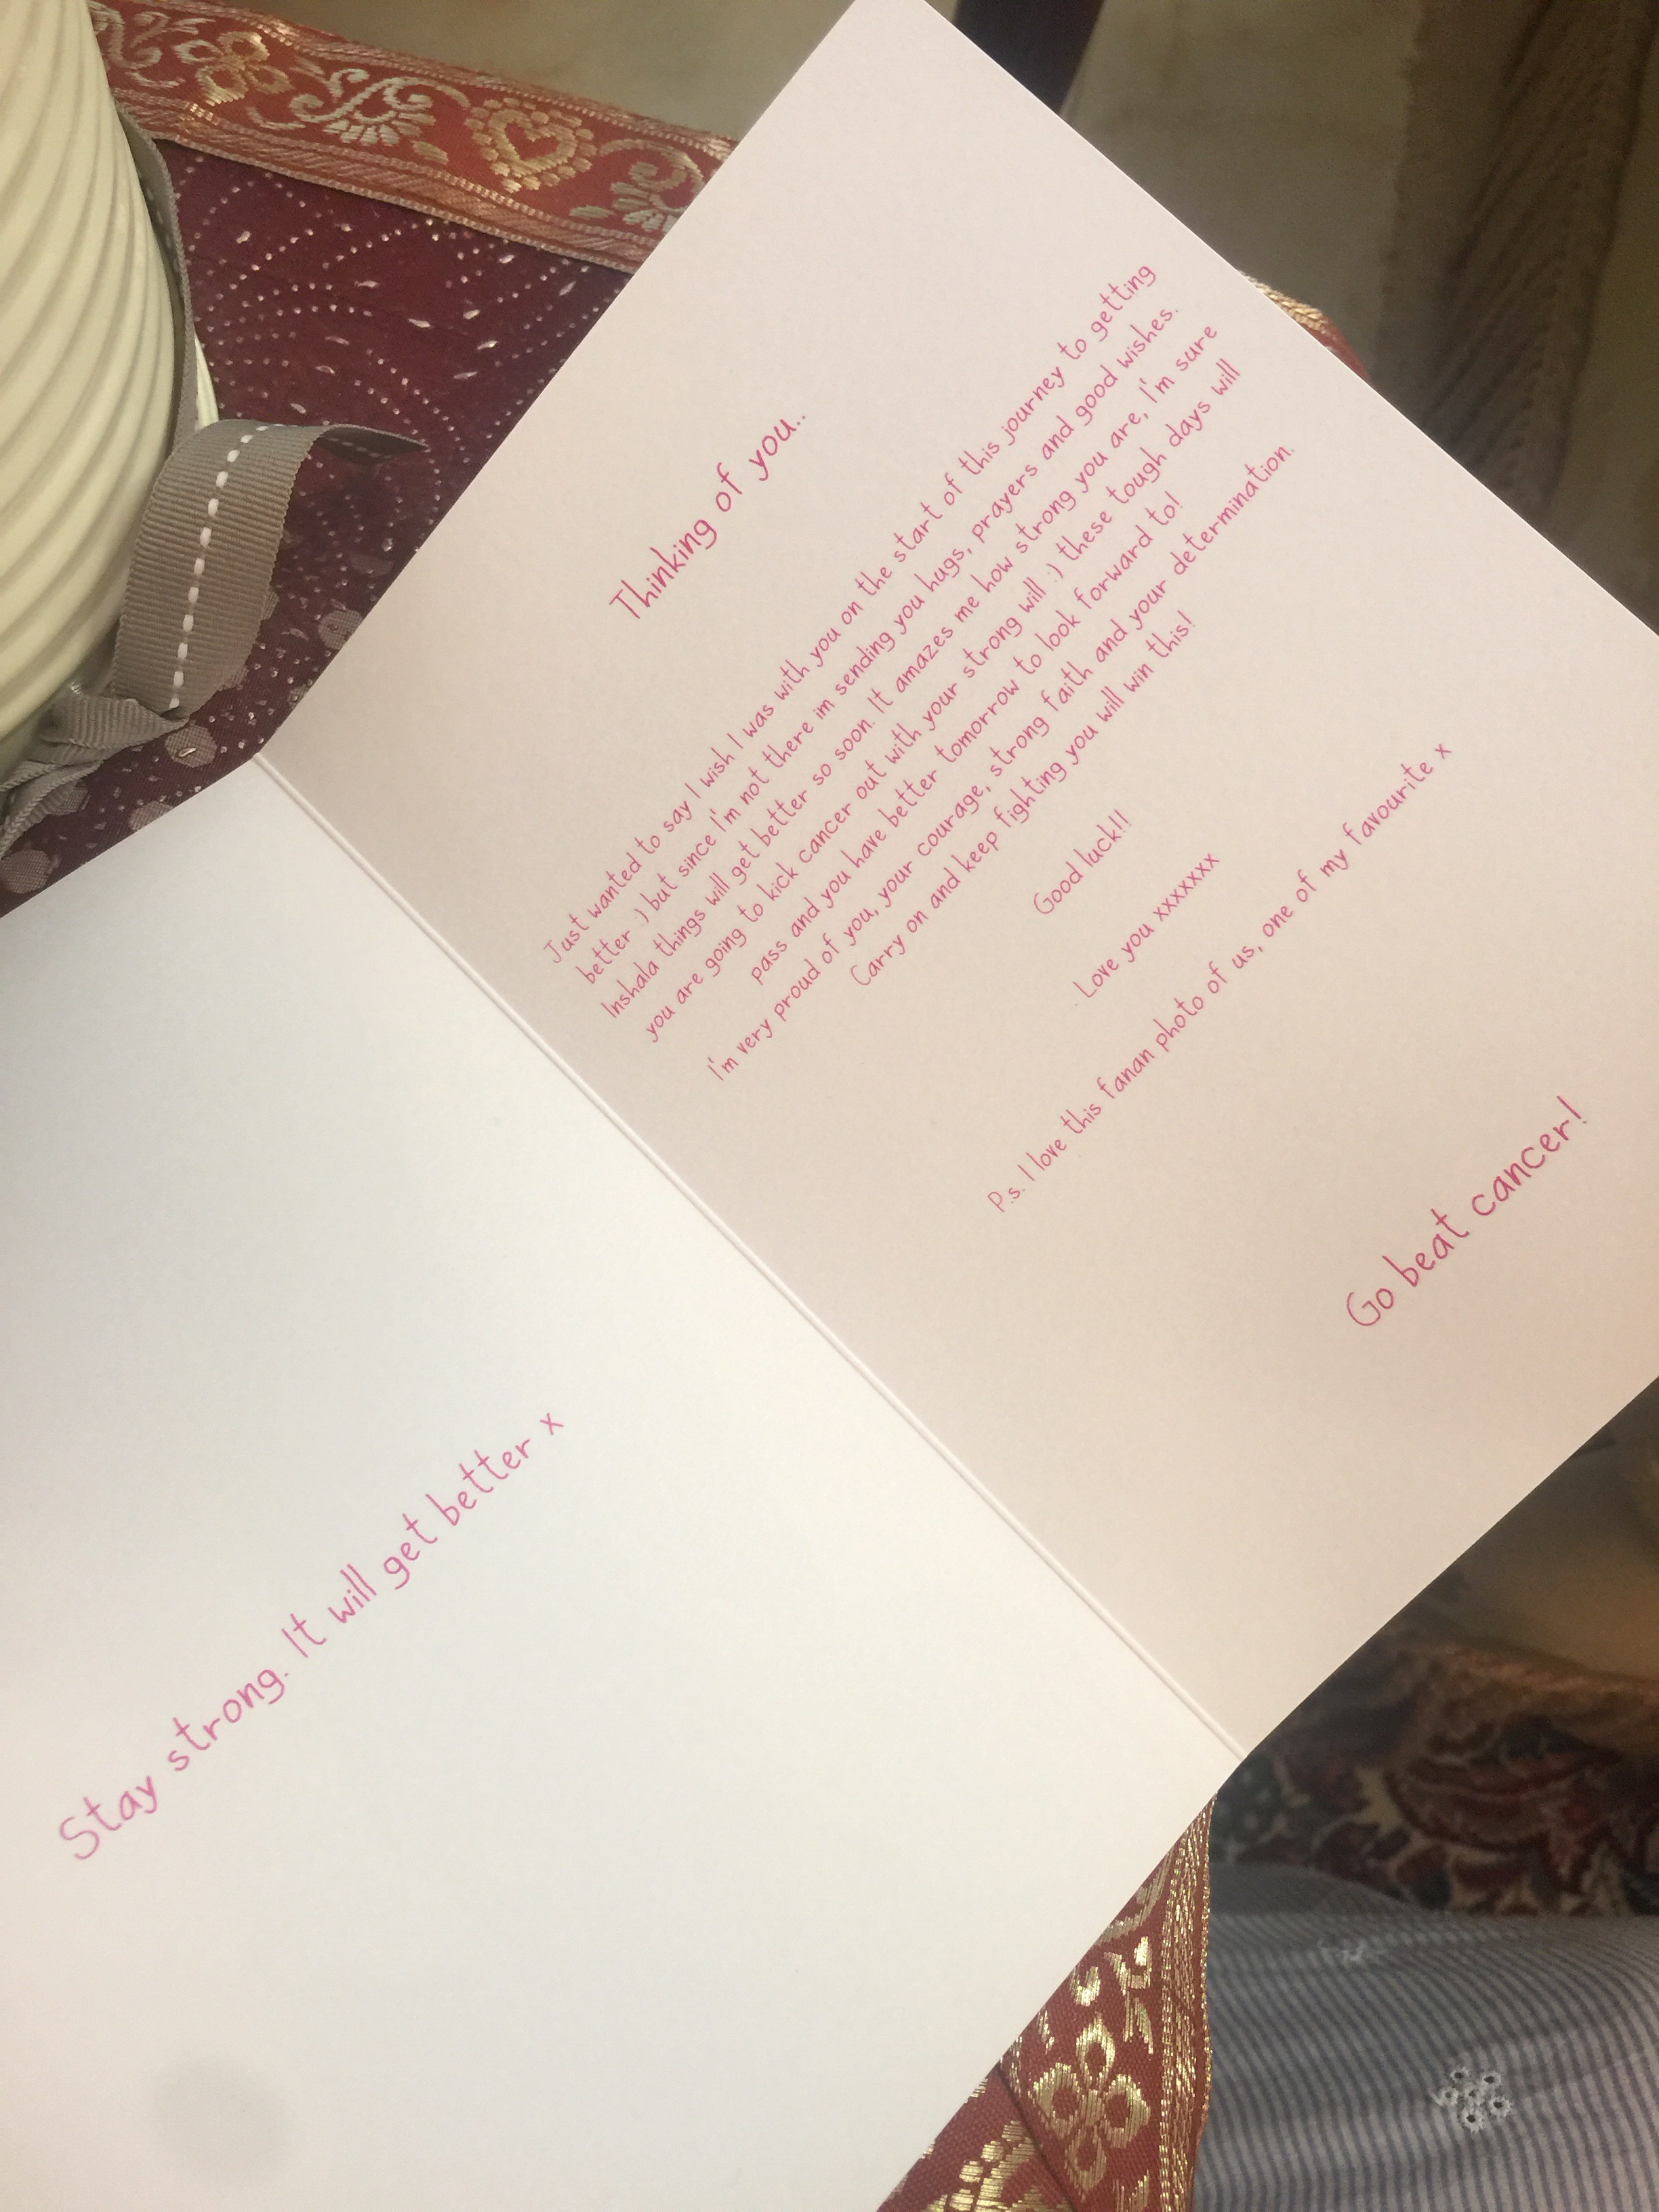 Stay strong. It will get better x
Thinking of you..
Just wanted to say I wish I was with you on the start of this journey to getting
better :) but since I'm not there im sending you hugs, prayers and good wishes.
Inshala things will get better so soon. It amazes me how strong you are, I'm sure
you are going to kick cancer out with your strong will :) these tough days will
pass and you have better tomorrow to look forward to!
I'm very proud of you, your courage, strong faith and your determination.
Carry on and keep fighting you will win this!
Good luck!!
Love you xxxxxxx
P.s. I love this fanan photo of us, one of my favourite x
Go beat cancer!